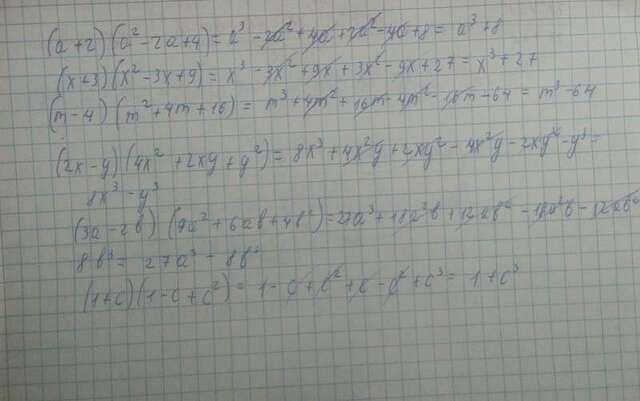 (a+2)(a²-2a+4)=a³-2a²+4a+2a²-4a+8=a³+8
(x+3)(x²-3x+9)=x³-3x²+9x+3x²-9x+27=x³+27
(m-4)(m²+4m+16)=m³+4m²+16m-4m²-16m-64=m³-64
(2x-y)(4x²+2xy+y²)=8x³+4x²y+2xy²-4x²y-2xy²-y³=
8x³-y³
(3a-2b)(9a²+6ab+4b²)=27a³+18a²b+12ab²-18a²b-12ab²
8b³=27a³-8b³
(1+c)(1-c+c²)=1-c+c²+c-c²+c³=1+c³